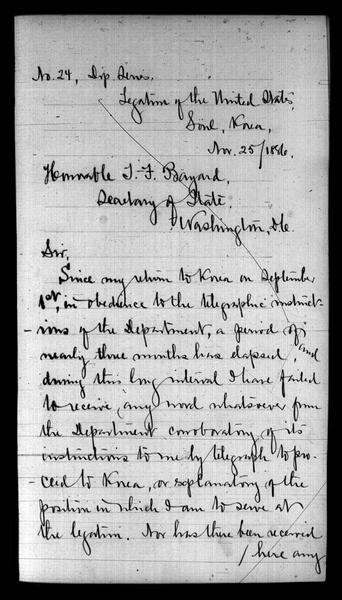 No. 24, Dip. Series.
Legation of the United States,
Söul, Korea,
Nov. 25/1886.
Honorable T. F. Bayard,
Secretary of State,
Washington, D.C.
Sir,
Since my return to Korea on September
1st, in obedience to the telegraphic instruct-
-ions of the Department, a period of
nearly three months has elapsed, and
during this long interval I have failed
to receive any word whatsoever from
the Department corroboratory of its
instructions to me by telegraph to pro-
ceed to Korea, or explanatory of the
position in which I am to serve at
the legation. Nor has there been received
/ here any